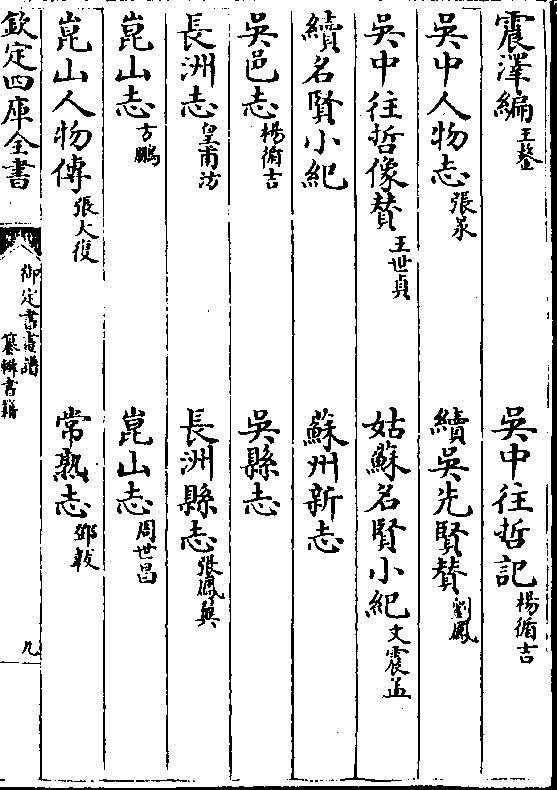 震澤編王鏊 吳中往哲記楊循吉
吳中人物志張㫤 續吳先賢贊劉鳳
吳中往哲像贊王世貞 姑蘇名賢小紀文震孟
續名賢小紀 蘇州新志
吳邑志楊循吉 吳縣志
長洲志皇甫汸 長洲縣志張鳳翼
崑山志方鵬 崑山志周世昌
崑山人物傳張大復 常熟志鄧韍
欽定四庫全書 御定書畫譜 纂輯書籍 九